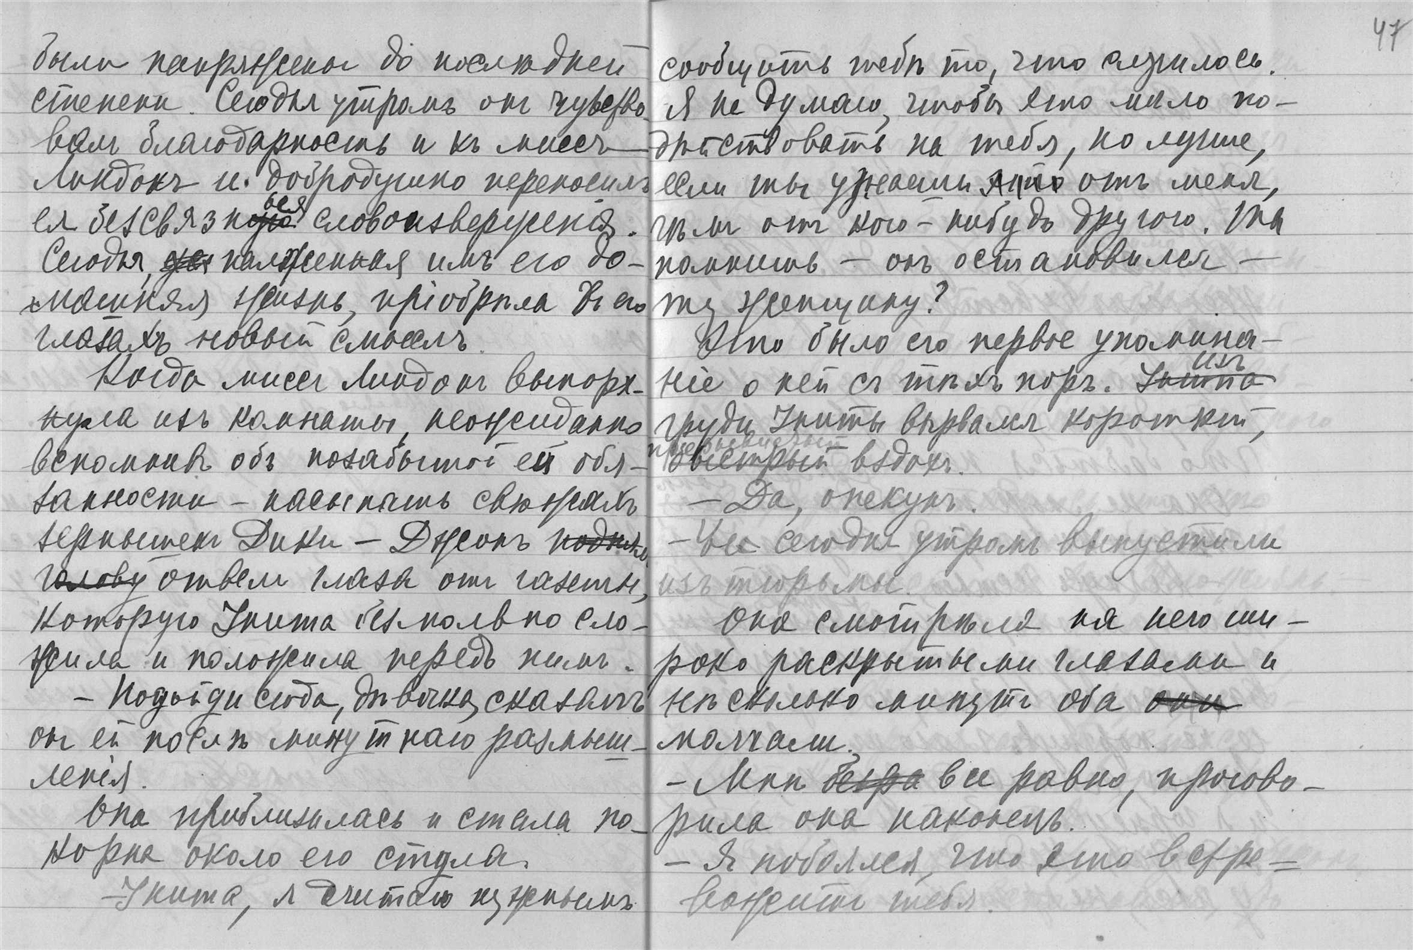 были напряжены до послѣдней
степени. Сегодня утромъ онъ чувство-
валъ благодарность и къ миссъ
Линдонъ и добродушно переносилъ
ея безсвязныя словоизверженія.
Сегодня, налаженная имъ его до-
машняя жизнь, пріобрѣла въ его
глазахъ новый смыслъ.
Когда миссъ Линдонъ выпорх-
нула изъ комнаты, неожиданно
вспомнивъ объ позабытой ей обя-
занности – насыпать свѣжихъ
зернышекъ Дики – Джонъ поднялъ
голову отвелъ глаза отъ газеты,
которую Унита безмолвно сло-
жила и положила передъ нимъ.
– Подойди сюда, дѣвочка, сказалъ
онъ ей послѣ минутнаго размыш-
ленія.
Она приблизилась и стала по-
корна около его стула.
– Унита, я считаю нужнымъ
47
сообщить тебѣ то, что случилось.
Я не думаю, чтобы это могло по-
дѣйствовать на тебя, но лучше,
если ты узнаешь это отъ меня,
чѣмъ отъ кого-нибудь другого. Ты
помнишь – онъ остановился –
ту женщину?
Это было его первое упомина-
ніе о ней съ тѣхъ поръ. Унита изъ
груди Униты вырвался короткій,
прерывистый
быстрый вздохъ.
– Да, опекунъ.
– Ее сегодня утромъ выпустили
изъ тюрьмы.
Она смотрѣла на него ши-
роко раскрытыми глазами и
нѣсколько минутъ оба они
молчали.
– Мнѣ все равно, прогово-
рила она наконецъ.
– Я боялся, что это встре-
вожитъ тебя.